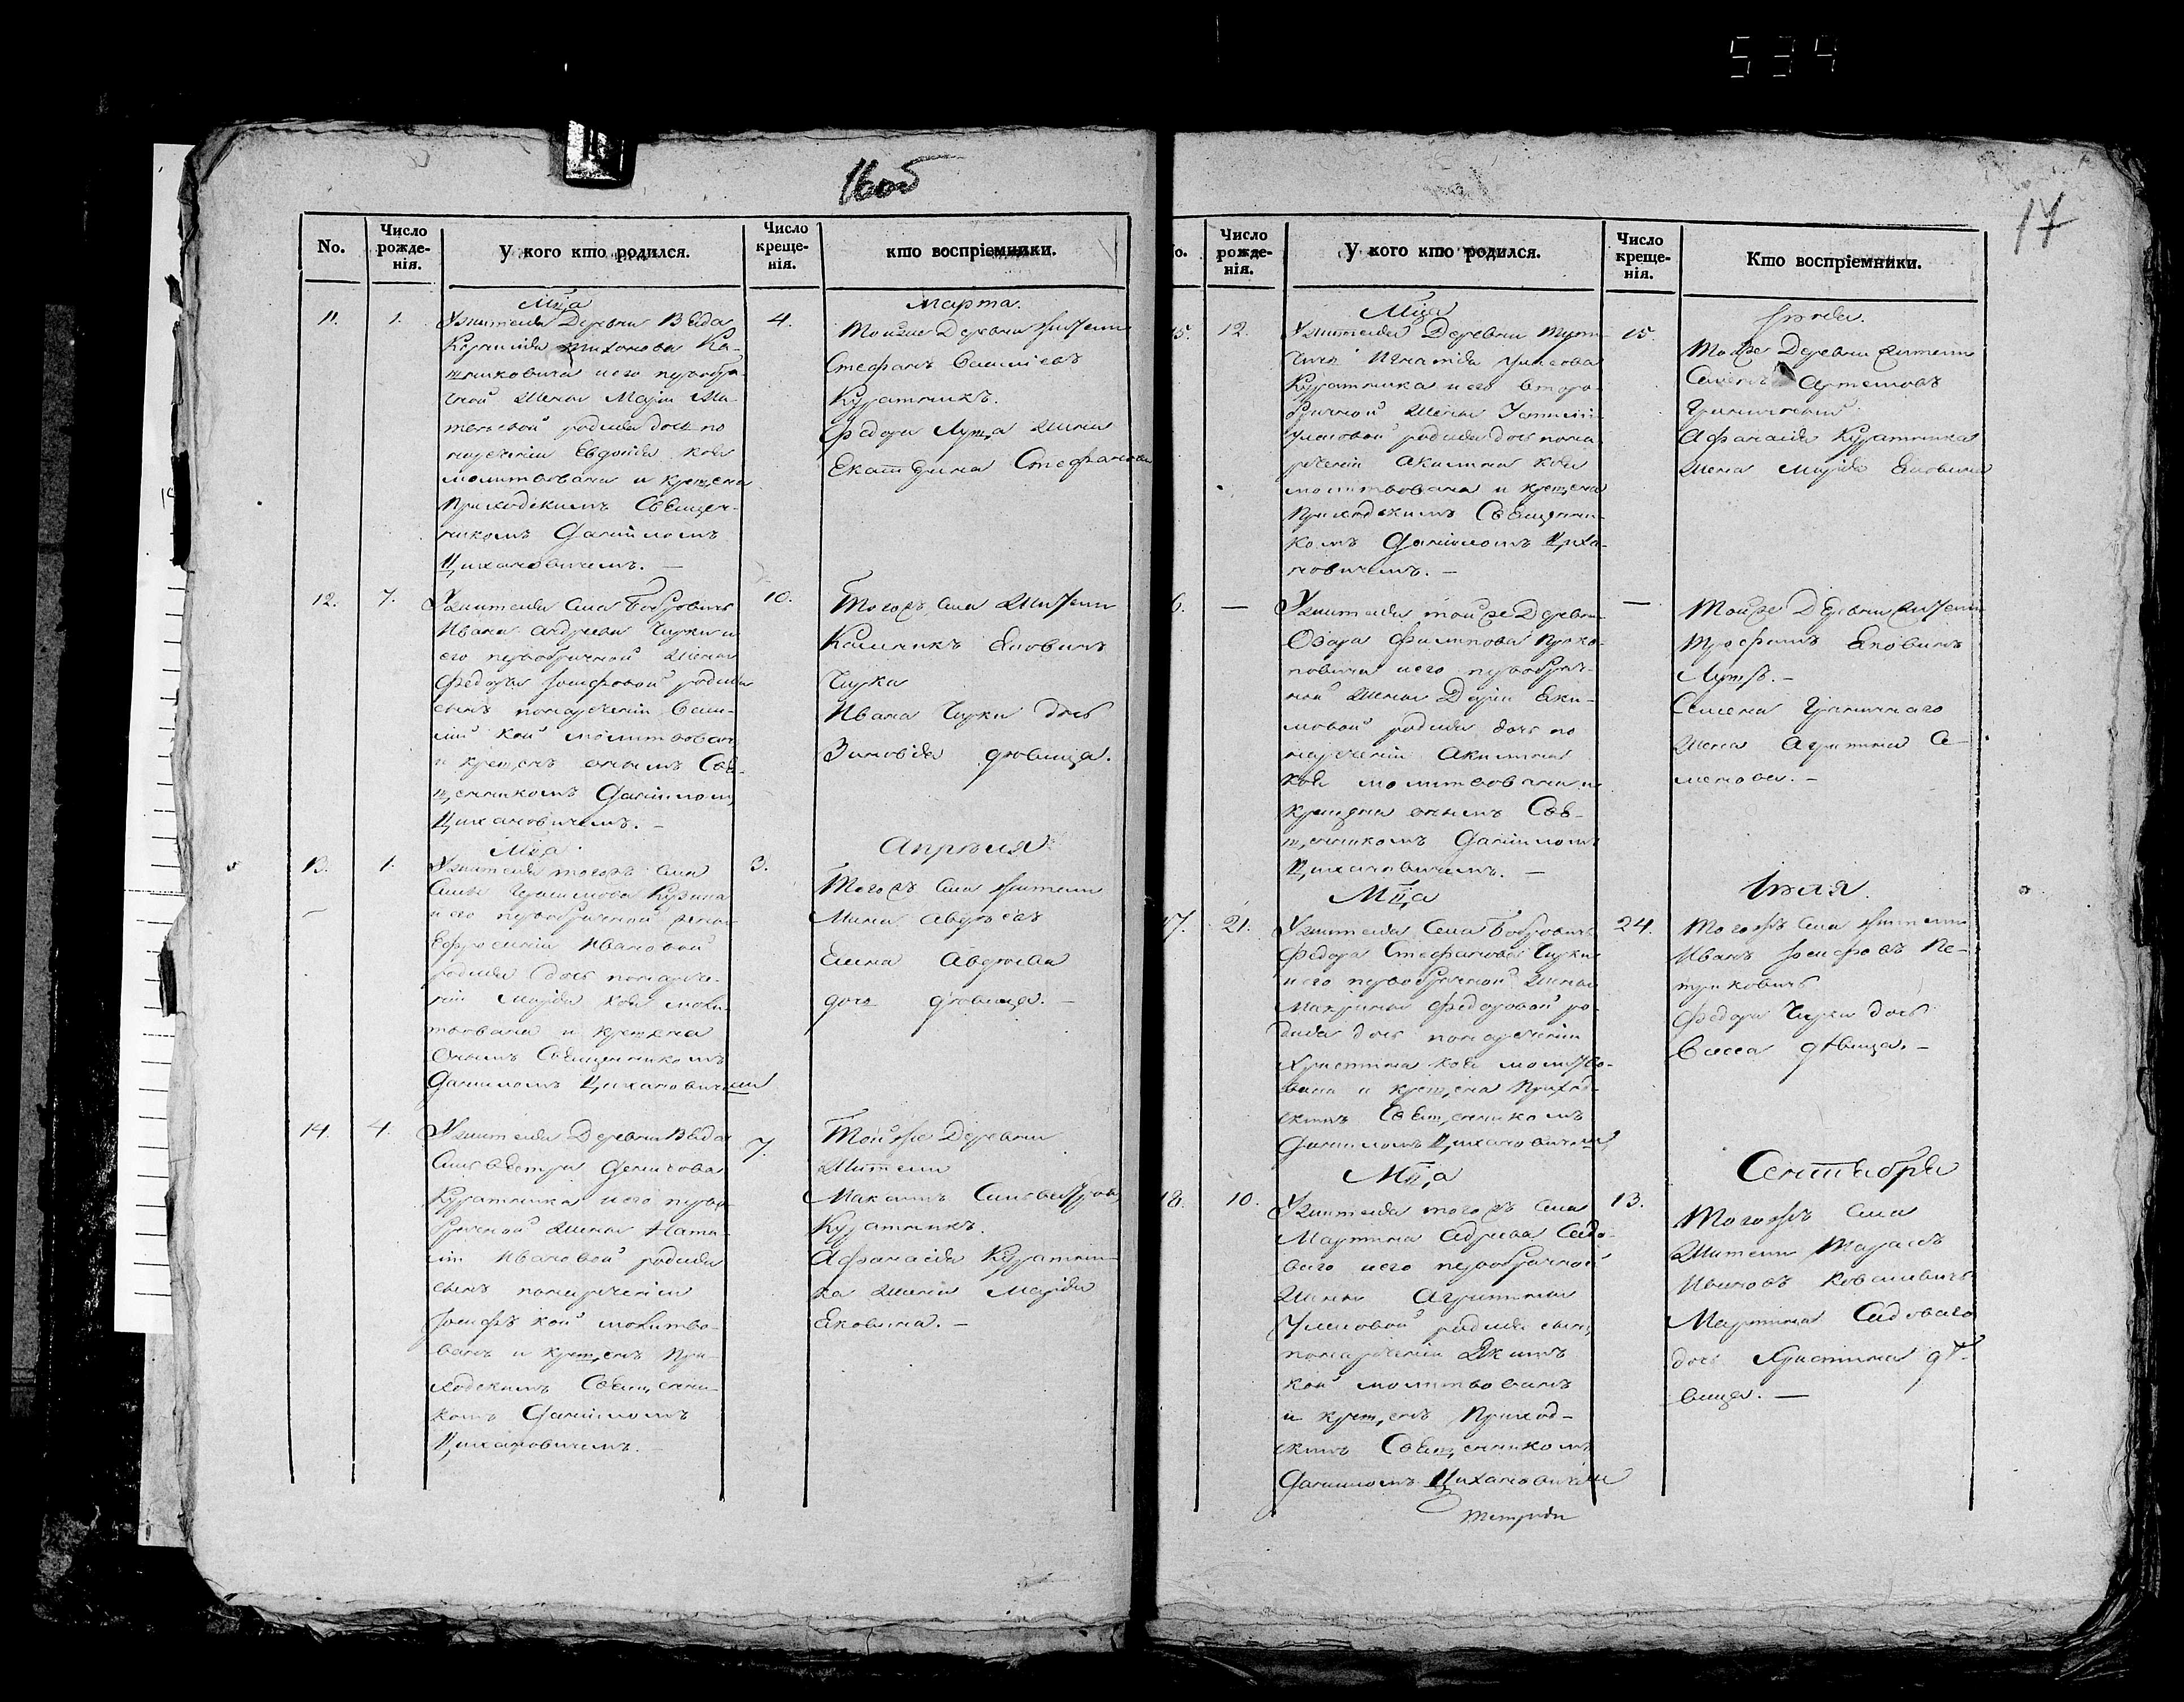 534
16об
No.
Число рожде-нія.
У кого кто родился.
Число креще-нія.
кто воспріемники.
Мца
Марта.
11.
1.
4.
Ужителя Деревни Вѣда
Корнилія Тихонова Ка-
и его первобра-
чной жены Маріи Ма-
родила дочь по
нареченіи Евдокія коя
молитвована и крещена
Приходскимъ Священ-
никомъ Даніиломъ
Цихановичемъ. —
Тойже Деревни жители
Стефанъ
Куратникъ.
Федора Лутца жена
Екатерина Стефанова
12.
7.
10.
Ужителя Села Бобровичъ
Ивана Андреева Чирки и
его первобрачной жены
Федоры Іосифовой родился
сынъ понареченіи Васи-
лій кой молитвован
и крещенъ онымъ Свя-
щенникомъ Даніиломъ
Цихановичемъ. —
Тогожъ Села жители
Калиникъ Яковичъ
Чирка
Ивана Чирки дочь
Зиновія девица.
Мца
Апреля
13.
1.
3.
Ужителя тогожъ Села
и его первобрачной жены
Ефросиніи Ивановой
родила дочь понарече-
ніи Марія коя моли-
твована и крещена
онымъ Священникомъ
Даніиломъ Цихановичемъ
Тогожъ Села жители
Мина Авдеевъ
Елена Авдеева
дочь девица. —
14.
4.
7.
Ужителя Деревни Вѣда
Сильвестра Денисова
Куратника и его перво-
брачной жены Ната-
ліи Ивановой родился
сынъ понареченіи
Іосифъ кой молитво-
ванъ и крещенъ При-
ходскимъ Священни-
комъ Даніиломъ
Цихановичемъ. —
Тойже Деревни
Жители
Максимъ Сильвестровъ
Куратникъ.
Афанасія Куратни-
ка жена Марія
Яковина. —
17
No.
Число рожде-нія.
У кого кто родился.
Число креще-нія.
Кто воспріемники.
Мца
15.
12.
15.
Ужителя Деревни
Игнатія
Куратника и его второ-
брачной жены
родила дочь пона-
реченіи Акилина коя
молитвована и крещена
Приходскимъ Священни-
комъ Даніиломъ Циха-
новичемъ. —
Тойже Деревни жители
Семенъ Артемовъ
Афанасія Куратника
жена Марія Яковина
6.
—
—
Ужителя тойже Деревни
Филипова Проко-
повича и его первобрач-
ной жены Даріи Яки-
мовой родила дочь по
нареченіи Акилина
коя молитвована и
крещена онымъ Свя-
щенникомъ Даніиломъ
Цихановичемъ. —
Тойже Деревни жители
Трофимъ Яковичъ
Лутъ. —
Семена
жена Агрипина Се-
менова. —
Мца
Іюля.
17.
21.
24.
Ужителя Села Бобровичъ
Федора Стефанова Чирки
и его первобрачной жены
Макрины Федоровой ро-
дила дочь понареченіи
Христина коя молитво-
вана и крещена Приход-
скимъ Священникомъ
Даніиломъ Цихановичемъ
Тогожъ Села жители
Иванъ Іосифовъ Пе-
триковичъ
Федора Чирки дочь
Васса дѣвица. —
Мца
Сентября
18.
10.
13.
Ужителя тогожъ Села
Мартина Адреева Садо-
ваго и его первобрачной
жены Агрипины
родился сынъ
понареченіи Якимъ
кой молитвованъ
и крещенъ Приход-
скимъ Священникомъ
Даніиломъ Цихановичемъ
Тогожъ Села
жители Тарасъ
Ивановъ Ковалевичъ
Мартина Садоваго
дочь Христина дѣ-
вица. —